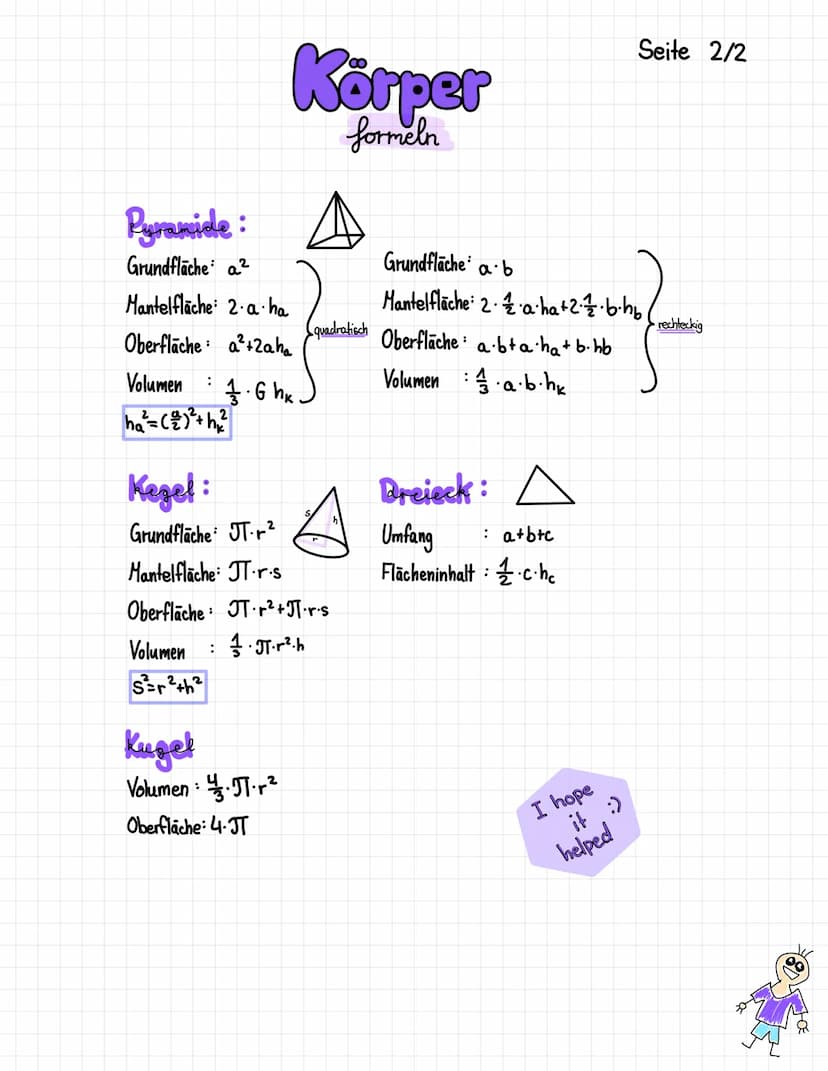 Seite 2/2
Körper
formeln
Pyramide:
Grundfläche: a²
Mantelfläche: 2·a·hₐ
Oberfläche: a²+2ahₐ
Volumen : 1/3·G hₖ
quadratisch
hₐ²=(a/2)²+hₖ²
Grundfläche: a·b
Mantelfläche: 2·1/2·a·ha+2·1/2·b·h_b
Oberfläche: a·b+a·hₐ+b·hb
Volumen : 1/3·a·b·hₖ
rechteckig
Kegel:
Grundfläche: π·r²
Mantelfläche: π·r·s
Oberfläche: π·r²+π·r·s
Volumen : 1/3·π·r²·h
s²=r²+h²
s
h
r
Dreieck:
Umfang : a+b+c
Flächeninhalt : 1/2·c·h_c
Kugel
Volumen: 4/3·π·r²
Oberfläche: 4·π
I hope
it :)
helped